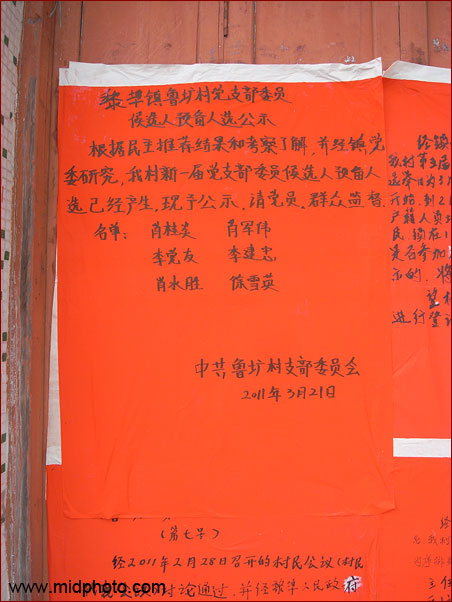 黎埠镇鲁圹村党支部委员
候选人预备人选公示
根据民主推荐结果和考察了解,并经镇党
委研究,我村新一届党支部委员候选人预备人
选已经产生,现予公示,请党员、群众监督.
名单: 肖桂炎 肖军伟
李党友 李建忠
肖水胜 徐雪英
中共鲁圹村支部委员会
2011年3月21日
经
我村第
选举
户籍人员
民须在
是否参加
示的,将
进行登记
(第七号)
经2011年2月28日召开的村民会议(村民
讨论通过,并经黎埠人民政府
www.midphoto.com